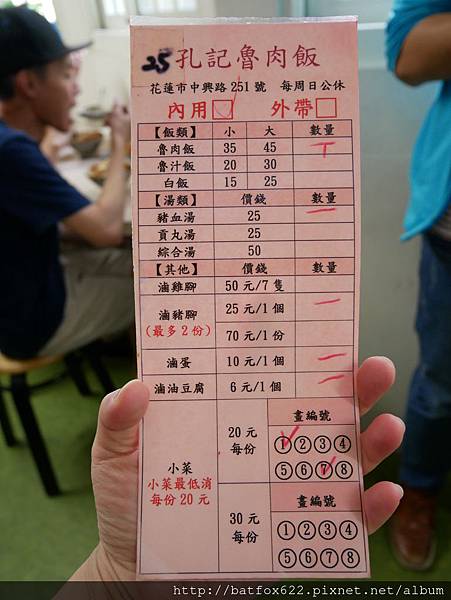 25 孔記魯肉飯
花蓮市中興路 251 號 每周日公休
內用□ 外帶□
【飯類】 小 大 數量
魯肉飯 35 45 T
魯汁飯 20 30
白飯 15 25
【湯類】 價錢 數量
豬血湯 25 一
貢丸湯 25
綜合湯 50
【其他】 價錢 數量
滷雞腳 50 元/7 隻
滷豬腳 25 元/1 個 一
(最多 2 份) 70 元/1 份
滷蛋 10 元/1 個 一
滷油豆腐 6 元/1 個 一
小菜
小菜最低消
每份 20 元
20 元
每份
畫編號
①②③④
⑤⑥⑦⑧
30 元
每份
畫編號
①②③④
⑤⑥⑦⑧
http://batfox622.pixnet.net/album